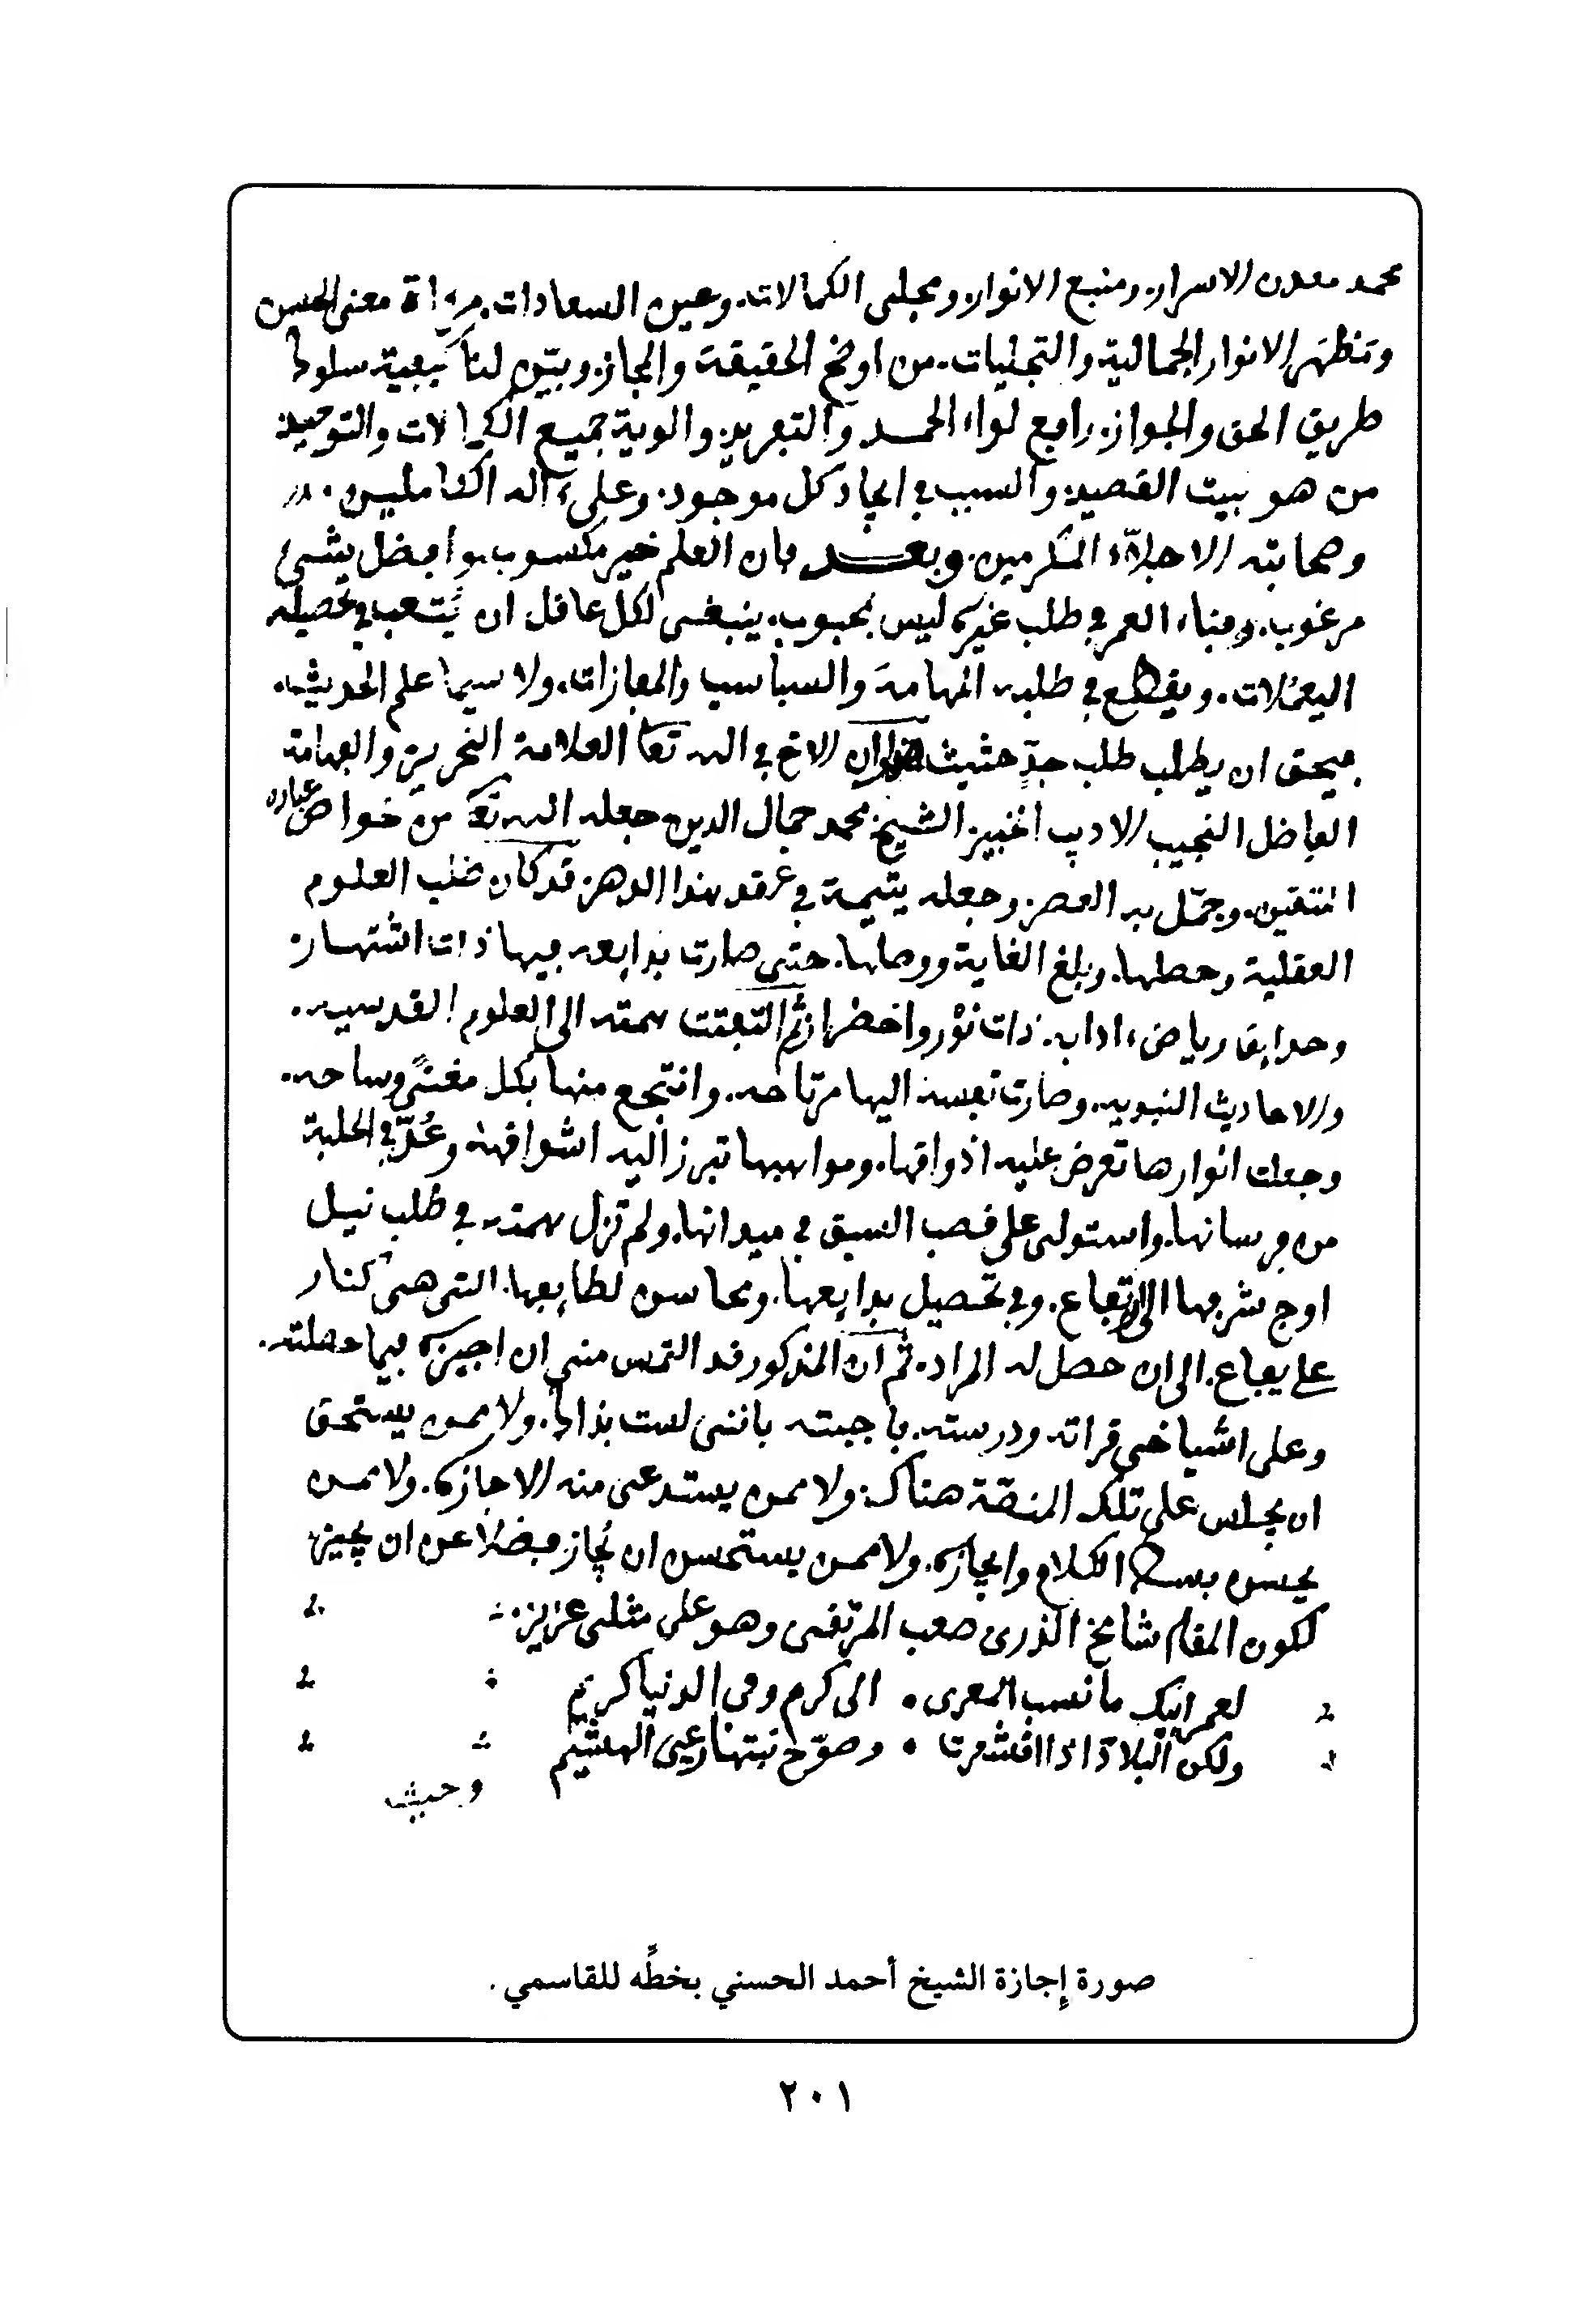 محمد معدن الاسرار. ومنبع الانوار. ومجلى الكمالات. وعين السعادات. مرءاة معنى الحسن
ومظهر الانوار الجمالية والتجليات. من اوضح الحقيقة والمجاز. وبيّن لنا كيفية سلوك
طريق الحق والجواز. رافع لواء الحمد والتفريد. والوية جميع الكمالات والتوحيد.
من هو بيت القصيد. والسبب في ايجاد كل موجود. وعلى ءاله الكاملين.
وصحابته الاجلاّء المكرمين. وبعد فان العلم خير مكسوب. وافضل شيئ
مرغوب. وفناء العمر في طلب غيره ليس بمحبوب. ينبغى لكل عاقل ان يُتعب في تحصيله
اليعمَلات. ويقطع في طلبه المهامهَ والسباسب والمفازات. ولا سيما علم الحديث.
فيحق ان يطلب طلب جدٍّ حثيث وان الاخ في الله تعا العلامة النحرير. والفهامة
الفاضل النجيب الاديب الخبير. الشيخ محمد جمال الدين جعله الله تعا من خواص عباده
المتقين. وجمّل به العصر. وجعله يتيمة في عقد هذا الدهر. قد كان طلب العلوم
العقلية وحصلها. وبلغ الغاية ووصلها. حتى صارت بدايعه فيها ذات اشتهار.
وحدايق رياض ءادابه. ذات نَوْر واخضرار. ثم التفتت همته الى العلوم القدسيه.
والاحاديث النبويه. وصارت نفسه اليها مرتاحه. وانتجع منها بكل مغنًى وساحه.
وجعلت انوارها تعرض عليه اذواقها. ومواهبها تبرز اليه اشواقها. وعُدّ في الحلبة
من فرسانها. واستولى على قصب السبق في ميدانها. ولم تزل همته في طلب نيل
اوج شرفها الى ارتفاع. وفي تحصيل بدايعها. ومحاسن لطايفها. التى هى كنار
على يفاع. الى ان حصل له المراد. ثم ان المذكور قد التمس منى ان اجيزه فيما حصلته.
وعلى اشياخى قراته ودرسته. فاجبته باننى لست بذاك. ولا ممن يستحق
ان يجلس على تلك المنصّة هناك. ولا ممن يستدعى منه الاجازه. ولا ممن
يحسن بسط الكلام وايجازه. ولا ممن يستحسن ان يُجاز فضلا عن ان يجيز.
لكون المقام شامخ الذرى صعب المرتقى وهو على مثلى عزيز.
لعمر ابيك ما نسب المعرى • الى كرم وفى الدنيا كريم
ولكن البلاد اذا اقشعرت • وصوّح نبتها رعى الهشيم
وحيث
صورة إجازة الشيخ أحمد الحسني بخطِّه للقاسمي .
٢٠١